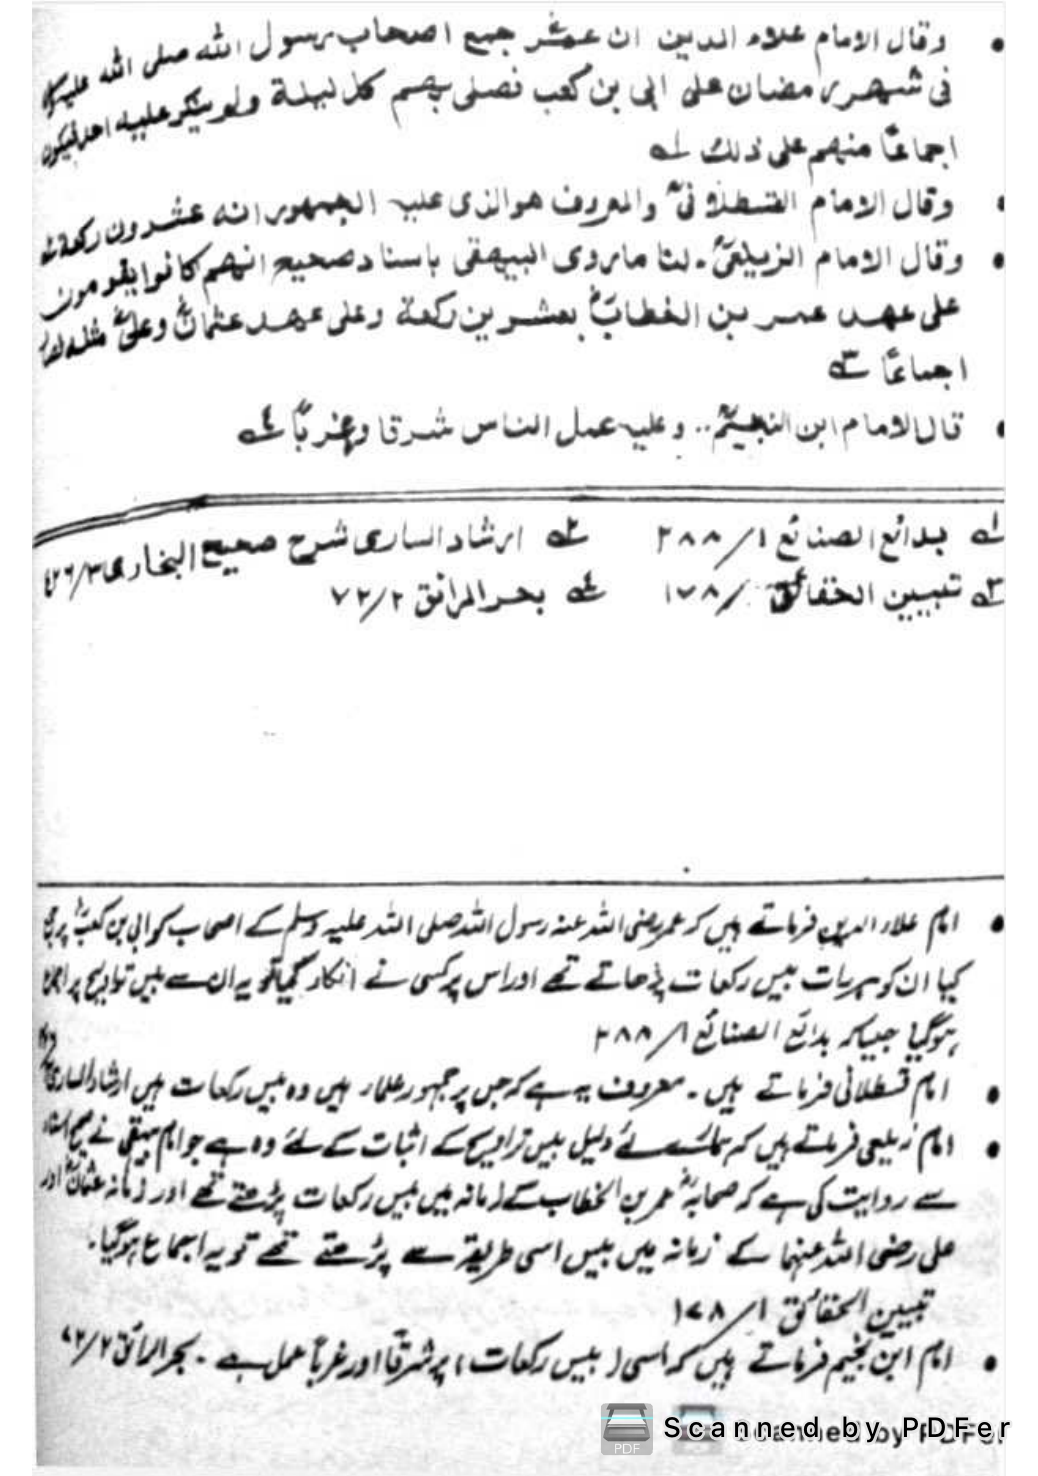 • وقال الامام علاء الدين ان عمرؓ جمع اصحاب رسول الله صلى الله عليه
فى شهر رمضان على ابى بن كعب فصلى بهم كل ليلة ولم ينكر عليه احد فيكون
اجماعًا منهم على ذلك ۱؎
• وقال الامام القسطلانىؒ والمعروف هوالذى عليه الجمهور انه عشرون ركعة
• وقال الامام الزيلعىؒ۔ لنا ماروى البيهقى باسناد صحيح انهم كانوا يقومون
على عهد عمر بن الخطابؓ بعشرين ركعة وعلى عهد عثمانؓ وعلىؓ مثله
اجماعًا ۳؎
• قال الامام ابن النجيمؒ .. وعليه عمل الناس شرقا وغربًا ۴؎
۱؎ بدائع الصنائع ۱/۲۸۸ ۲؎ ارشاد السارى شرح صحيح البخارى ۳/۴۲۶
۳؎ تبيين الحقائق /۱۷۸ ۴؎ بحر الرائق ۲/۷۲
• امام علاء الدین فرماتے ہیں کہ عمر رضی اللہ عنہ رسول اللہ صلی اللہ علیہ وسلم کے اصحاب کو ابی بن کعبؓ پر
کیا ان کو ہر رات بیس رکعات پڑھاتے تھے اور اس پر کسی نے انکار نہ کیا تو یہ ان سے بیس تراویح پر
ہوگیا جیسا کہ بدائع الصنائع ۱/۲۸۸
• امام قسطلانی فرماتے ہیں ۔ معروف یہ ہے کہ جس پر جمہور علماء ہیں وہ بیس رکعات ہیں ارشاد الساری
• امام زیلعی فرماتے ہیں کہ ہمارے لئے دلیل بیس تراویح کے اثبات کے لئے وہ ہے جو امام بیہقی نے صحیح اسناد
سے روایت کی ہے کہ صحابہؓ عمر بن الخطاب کے زمانہ میں بیس رکعات پڑھتے تھے اور زمانہ عثمانؓ اور
علی رضی اللہ عنہما کے زمانہ میں بیس اسی طریقہ سے پڑھتے تھے تو یہ اجماع ہوگیا۔
تبیین الحقائق ۱/۱۷۸
• امام ابن نجیم فرماتے ہیں کہ اسی (بیس رکعات) پر شرقاً اور غرباً عمل ہے ۔ بحر الرائق ۲/۷۲
Scanned by PDFer